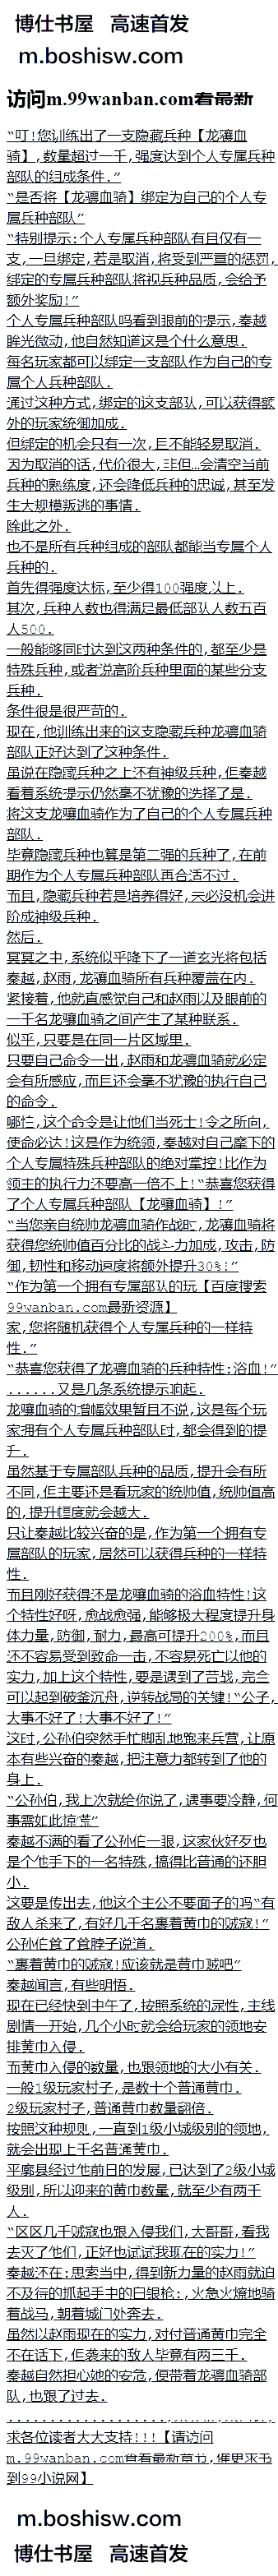 博仕书屋 高速首发
m.boshisw.com
访问m.99wanban.com看最新
“叮!您训练出了一支隐藏兵种【龙骧血
骑】,数量超过一千,强度达到个人专属兵种
部队的组成条件.”
“是否将【龙骧血骑】绑定为自己的个人专
属兵种部队”
“特别提示:个人专属兵种部队有且仅有一
支,一旦绑定,若是取消,将受到严重的惩罚,
绑定的专属兵种部队将视兵种品质,会给予
额外奖励!”
个人专属兵种部队吗看到眼前的提示,秦越
眸光微动,他自然知道这是个什么意思.
每名玩家都可以绑定一支部队作为自己的专
属个人兵种部队.
通过这种方式,绑定的这支部队,可以获得额
外的玩家统御加成.
但绑定的机会只有一次,且不能轻易取消.
因为取消的话,代价很大,非但…会清空当前
兵种的熟练度,还会降低兵种的忠诚,甚至发
生大规模叛逃的事情.
除此之外.
也不是所有兵种组成的部队都能当专属个人
兵种的.
首先得强度达标,至少得100强度以上.
其次,兵种人数也得满足最低部队人数五百
人500.
一般能够同时达到这两种条件的,都至少是
特殊兵种,或者说高阶兵种里面的某些分支
兵种.
条件很是很严苛的.
现在,他训练出来的这支隐藏兵种龙骧血骑
部队正好达到了这种条件.
虽说在隐藏兵种之上还有神级兵种,但秦越
看着系统提示仍然毫不犹豫的选择了是.
将这支龙骧血骑作为了自己的个人专属兵种
部队.
毕竟隐藏兵种也算是第二强的兵种了,在前
期作为个人专属兵种部队再合适不过.
而且,隐藏兵种若是培养得好,未必没机会进
阶成神级兵种.
然后.
冥冥之中,系统似乎降下了一道玄光将包括
秦越,赵雨,龙骧血骑所有兵种覆盖在内.
紧接着,他就直感觉自己和赵雨以及眼前的
一千名龙骧血骑之间产生了某种联系.
似乎,只要是在同一片区域里.
只要自己命令一出,赵雨和龙骧血骑就必定
会有所感应,而且还会毫不犹豫的执行自己
的命令.
哪怕,这个命令是让他们当死士!令之所向,
使命必达!这是作为统领,秦越对自己麾下的
个人专属特殊兵种部队的绝对掌控!比作为
领主的执行力还要高一倍不上!“恭喜您获得
了个人专属兵种部队【龙骧血骑】!”
“当您亲自统帅龙骧血骑作战时,龙骧血骑将
获得您统帅值百分比的战斗力加成,攻击,防
御,韧性和移动速度将额外提升30%!”
“作为第一个拥有专属部队的玩【百度搜索
99wanban.com最新资源】
家,您将随机获得个人专属兵种的一样特
性.”
“恭喜您获得了龙骧血骑的兵种特性:浴血!”
......又是几条系统提示响起.
龙骧血骑的增幅效果暂且不说,这是每个玩
家拥有个人专属兵种部队时,都会得到的提
升.
虽然基于专属部队兵种的品质,提升会有所
不同,但主要还是看玩家的统帅值,统帅值高
的,提升幅度就会越大.
只让秦越比较兴奋的是,作为第一个拥有专
属部队的玩家,居然可以获得兵种的一样特
性.
而且刚好获得还是龙骧血骑的浴血特性!这
个特性好呀,愈战愈强,能够极大程度提升身
体力量,防御,耐力,最高可提升200%,而且
还不容易受到致命一击,不容易死亡以他的
实力,加上这个特性,要是遇到了苦战,完全
可以起到破釜沉舟,逆转战局的关键!“公子,
大事不好了!大事不好了!”
这时,公孙伯突然手忙脚乱地跑来兵营,让原
本有些兴奋的秦越,把注意力都转到了他的
身上.
“公孙伯,我上次就给你说了,遇事要冷静,何
事需如此惊慌”
秦越不满的看了公孙伯一眼,这家伙好歹也
是个他手下的一名特殊,搞得比普通的还胆
小.
这要是传出去,他这个主公不要面子的吗“有
敌人杀来了,有好几千名裹着黄巾的贼寇!”
公孙伯耸了耸脖子说道.
“裹着黄巾的贼寇!应该就是黄巾贼吧”
秦越闻言,有些明悟.
现在已经快到中午了,按照系统的尿性,主线
剧情一开始,几个小时就会给玩家的领地安
排黄巾入侵.
而黄巾入侵的数量,也跟领地的大小有关.
一般1级玩家村子,是数十个普通黄巾.
2级玩家村子,普通黄巾数量翻倍.
按照这种规则,一直到1级小城级别的领地,
就会出现上千名普通黄巾.
平廓县经过他前日的发展,已达到了2级小城
级别,所以迎来的黄巾数量,就至少有两千
人.
“区区几千贼寇也跟入侵我们,大哥哥,看我
去灭了他们,正好也试试我现在的实力!”
秦越还在:思索当中,得到新力量的赵雨就迫
不及待的抓起手中的白银枪:,火急火燎地骑
着战马,朝着城门处奔去.
虽然以赵雨现在的实力,对付普通黄巾完全
不在话下,但袭来的敌人毕竟有两三千.
秦越自然担心她的安危,便带着龙骧血骑部
队,也跟了过去.
求各位读者大大支持!!!【请访问
m.99wanban.com查看最新章节,催更求书
到99小说网】
m.boshisw.com
博仕书屋 高速首发